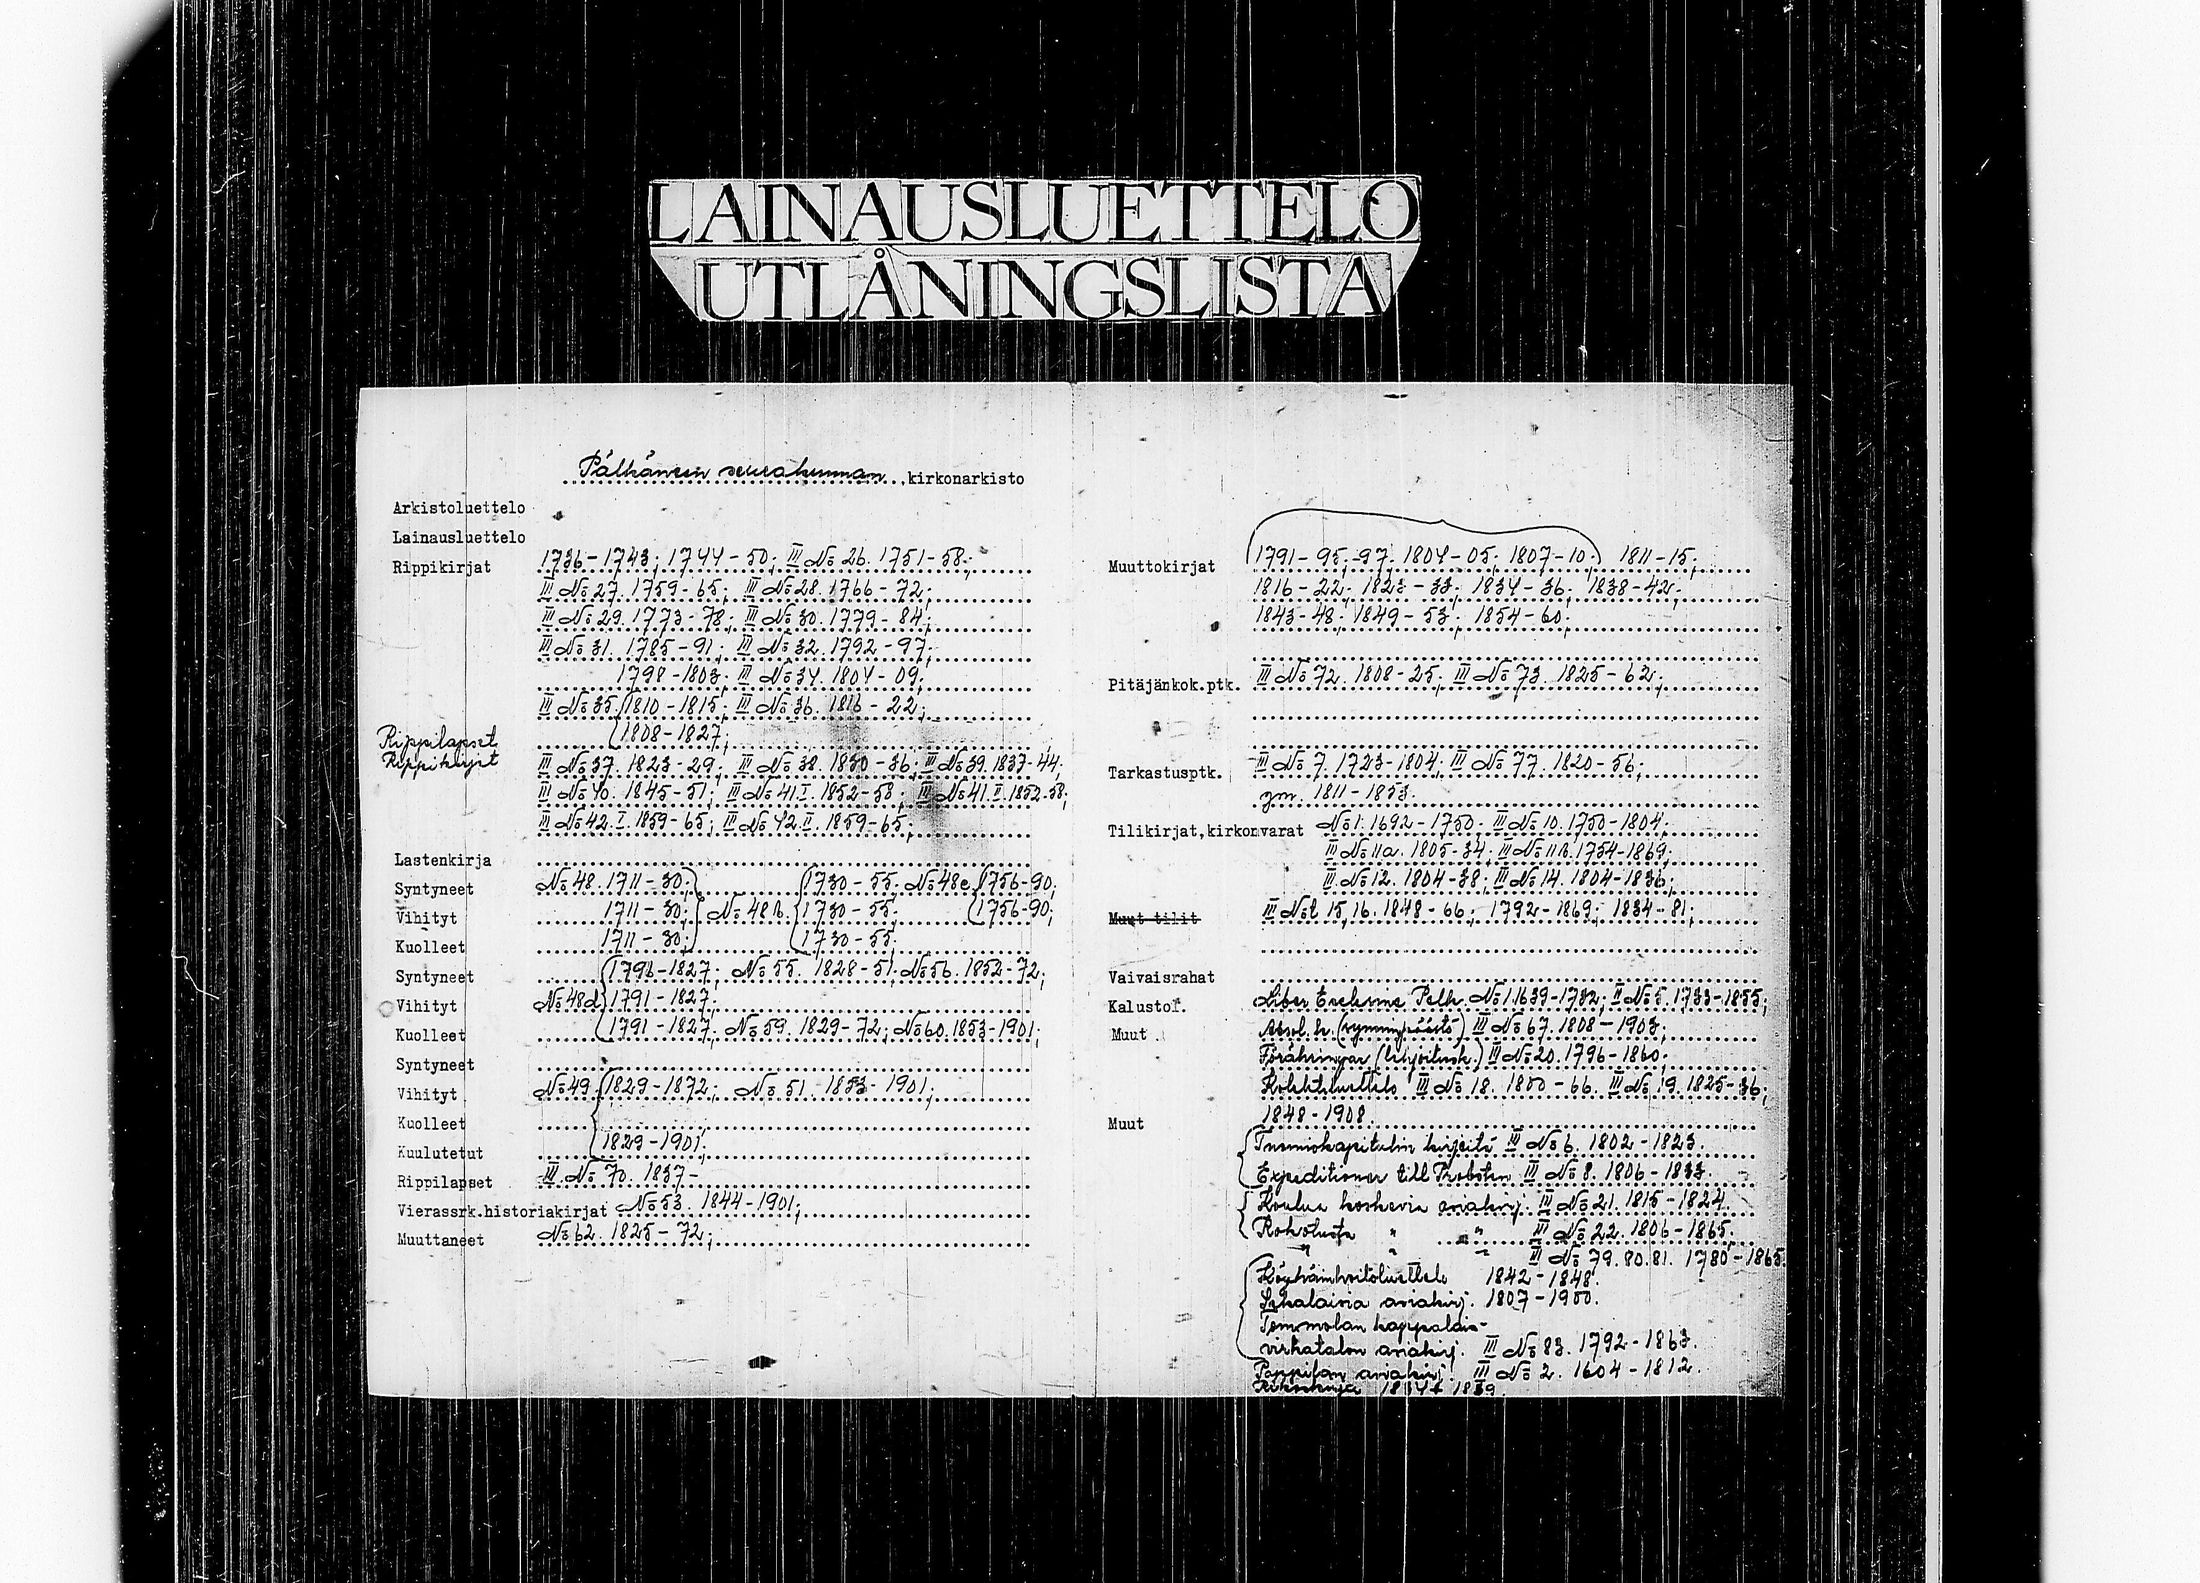 LAINAUSLUETTELO
UTLÅNINGSLISTA
Pälkäneen seurakunnan kirkonarkisto
Arkistoluettelo
Lainausluettelo
Rippikirjat 1736-1743; 1744-50; III No 26. 1751-58;
III No 27. 1759-65; III No 28. 1766-72;
III No 29. 1773-78; III No 30. 1779-84;
III No 31. 1785-91; III No 32. 1792-97;
1798-1803; III No 34. 1804-09;
III No 35. 1810-1815; III No 36. 1816-22;
Rippilapset 1808-1827;
Rippikirjat III No 37. 1823-29; III No 38. 1830-36; III No 39. 1837-44;
III No 40. 1845-51; III No 41.I. 1852-58; III No 41.II. 1852-58;
III No 42.I. 1859-65; III No 42.II. 1859-65;
Lastenkirja
Syntyneet No 48. 1711-30; 1730-55; No 48c 1756-90;
Vihityt 1711-30; No 48b. 1730-55; 1756-90;
Kuolleet 1711-30; 1730-55.
Syntyneet 1796-1827; No 55. 1828-51; No 56. 1852-72;
Vihityt No 48d 1791-1827.
Kuolleet 1791-1827. No 59. 1829-72; No 60. 1853-1901;
Syntyneet
Vihityt No 49. 1829-1872; No 51. 1853-1901;
Kuolleet
Kuulutetut 1829-1901.
Rippilapset III No 70. 1837-
Vierassrk.historiakirjat No 53. 1844-1901;
Muuttaneet No 62. 1825-72;
Muuttokirjat 1791-95; -97. 1804-05; 1807-10; 1811-15;
1816-22; 1823-33; 1834-36; 1838-42;
1843-48; 1849-53; 1854-60;
Pitäjänkok.ptk. III No 72. 1808-25; III No 73. 1825-62;
Tarkastusptk. III No 7. 1723-1804; III No 77. 1820-56;
ym. 1811-1853.
Tilikirjat,kirkonvarat No 1. 1692-1750. III No 10. 1750-1804;
III No 11a. 1805-34; III No 11b. 1754-1869;
III No 12. 1804-38; III No 14. 1804-1836;
Muut tilit III No:t 15,16. 1848-66; 1792-1869; 1834-81;
Vaivaisrahat
Kalustol. Liber Pelk. No 1. 1639-1732; II No 5. 1733-1855;
Muut Absol.k. (synninpäästö) III No 67. 1808-1903;
Föräkringar (lahjoitusk.) III No 20. 1796-1860.
Kolehtiluettelo III No 18. 1800-66. III No 19. 1825-36;
Muut 1848-1908.
Tuomiokapitulin kirjeitä III No 6. 1802-1823.
Expeditioner till Probsten III No 8. 1806-1833.
Koulua koskevia asiakirj. III No 21. 1815-1824.
Rokotusta " " " III No 22. 1806-1865.
" " " III No 79.80.81. 1780-1865.
Köyhäinhoitoluettelo 1842-1848.
Sekalaisia asiakirj. 1807-1900.
Tommolan kappalais-
virkatalon asiakirj. III No 83. 1792-1863.
Pappilan asiakirj. III No 2. 1604-1812.